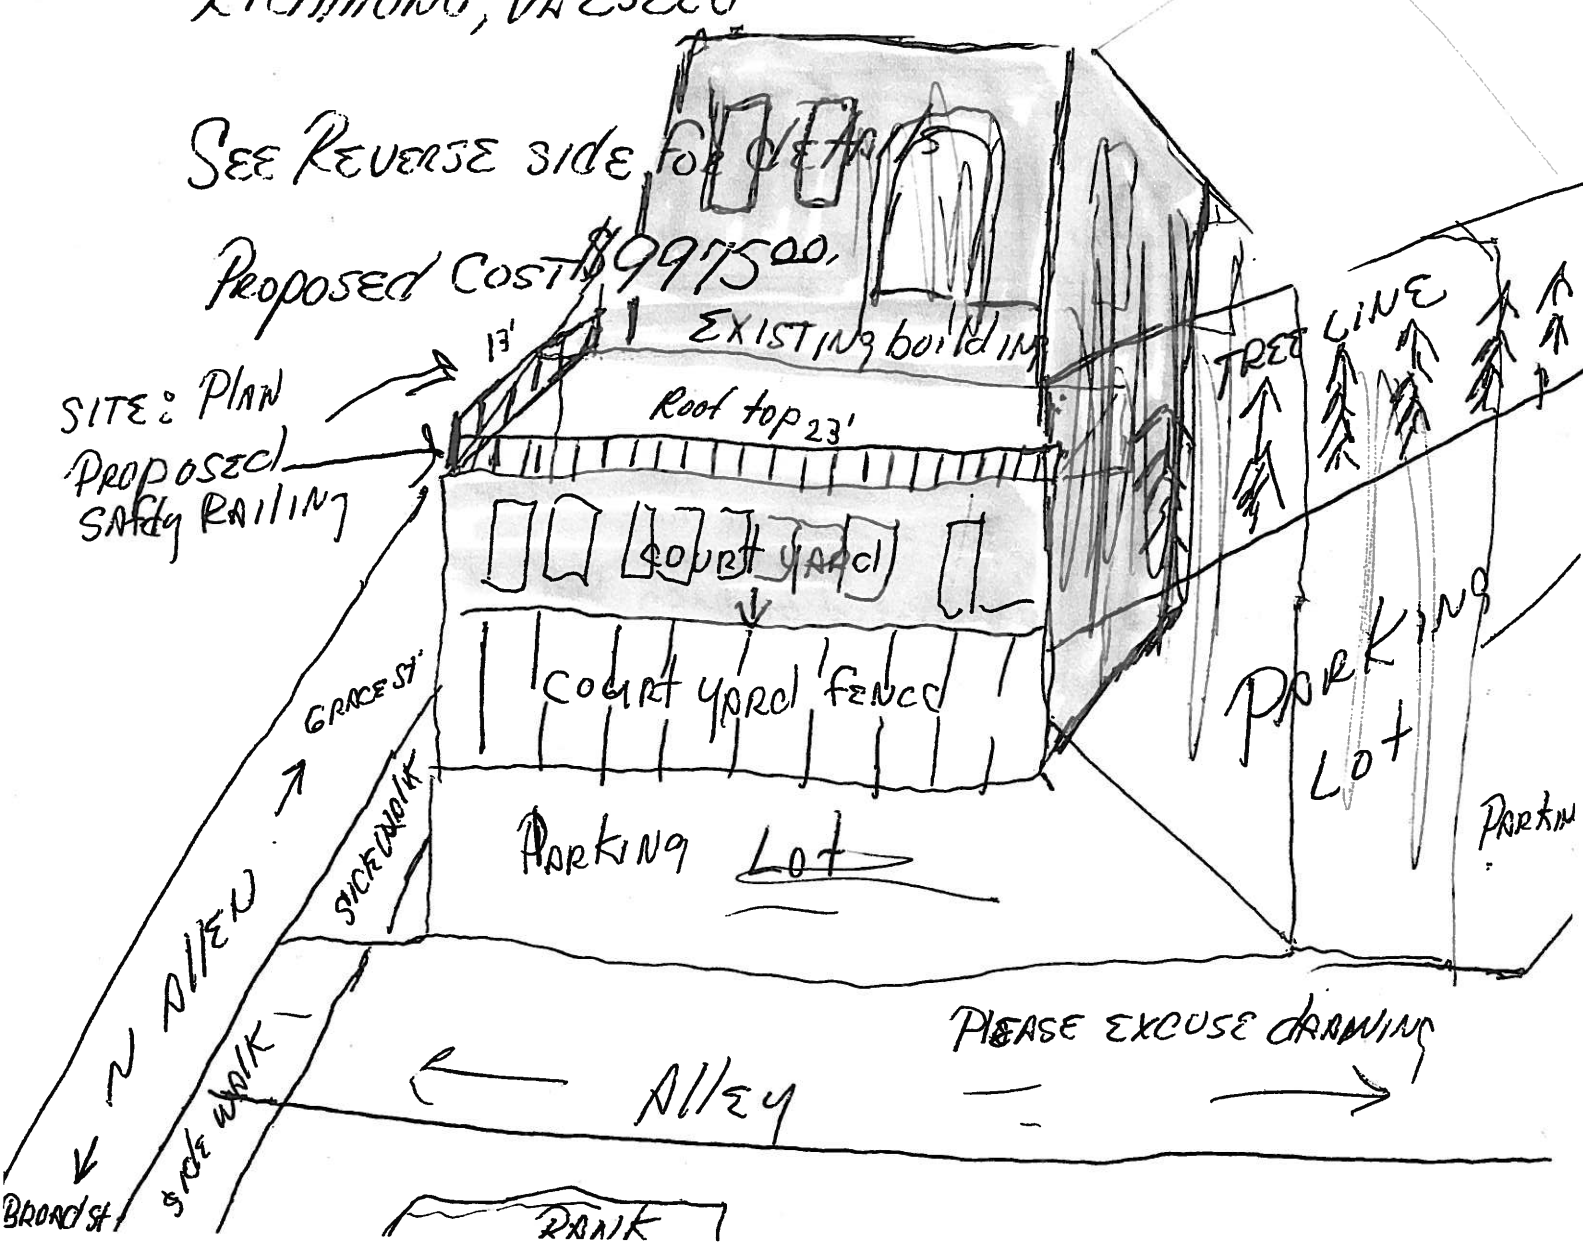 RICHMOND, VA 23220
SEE REVERSE side for detAils
Proposed Cost $9975 00.
13'
EXISTING building
SITE: PlAN
Proposed
SAfety RAILING
Roof top 23'
TREE LINE
COURT YARd
COURT YARd fence
GRACE ST.
PARKING
Lot
PARKIN
SIDEWALK
PARKING Lot
N Allen
PlEASE EXCUSE dRAWING
Alley
SIDE WALK
BROAd St
BANK